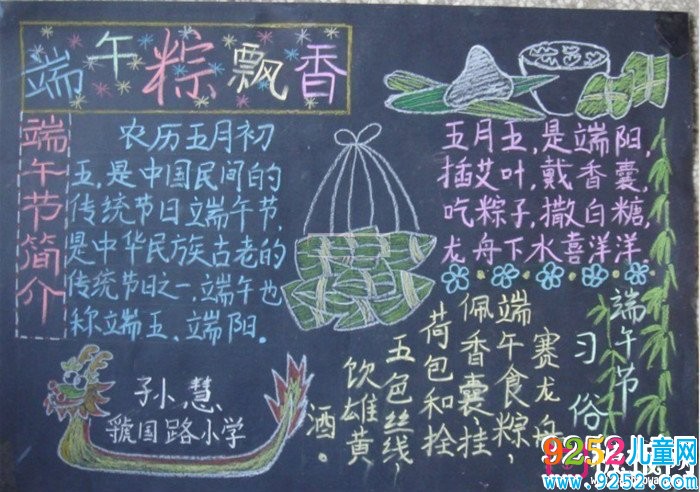 端午粽飘香
端午节简介
农历五月初
五,是中国民间的
传统节日端午节,
是中华民族古老的
传统节日之一,端午也
称端五、端阳。
五月五,是端阳,
插艾叶,戴香囊,
吃粽子,撒白糖,
龙舟下水喜洋洋
端午节
习俗
赛龙舟
端午食粽,
佩香囊,挂
荷包和拴
五色丝线,
饮雄黄
酒。
孙慧
虢国路小学
9252儿童网
www.9252.com